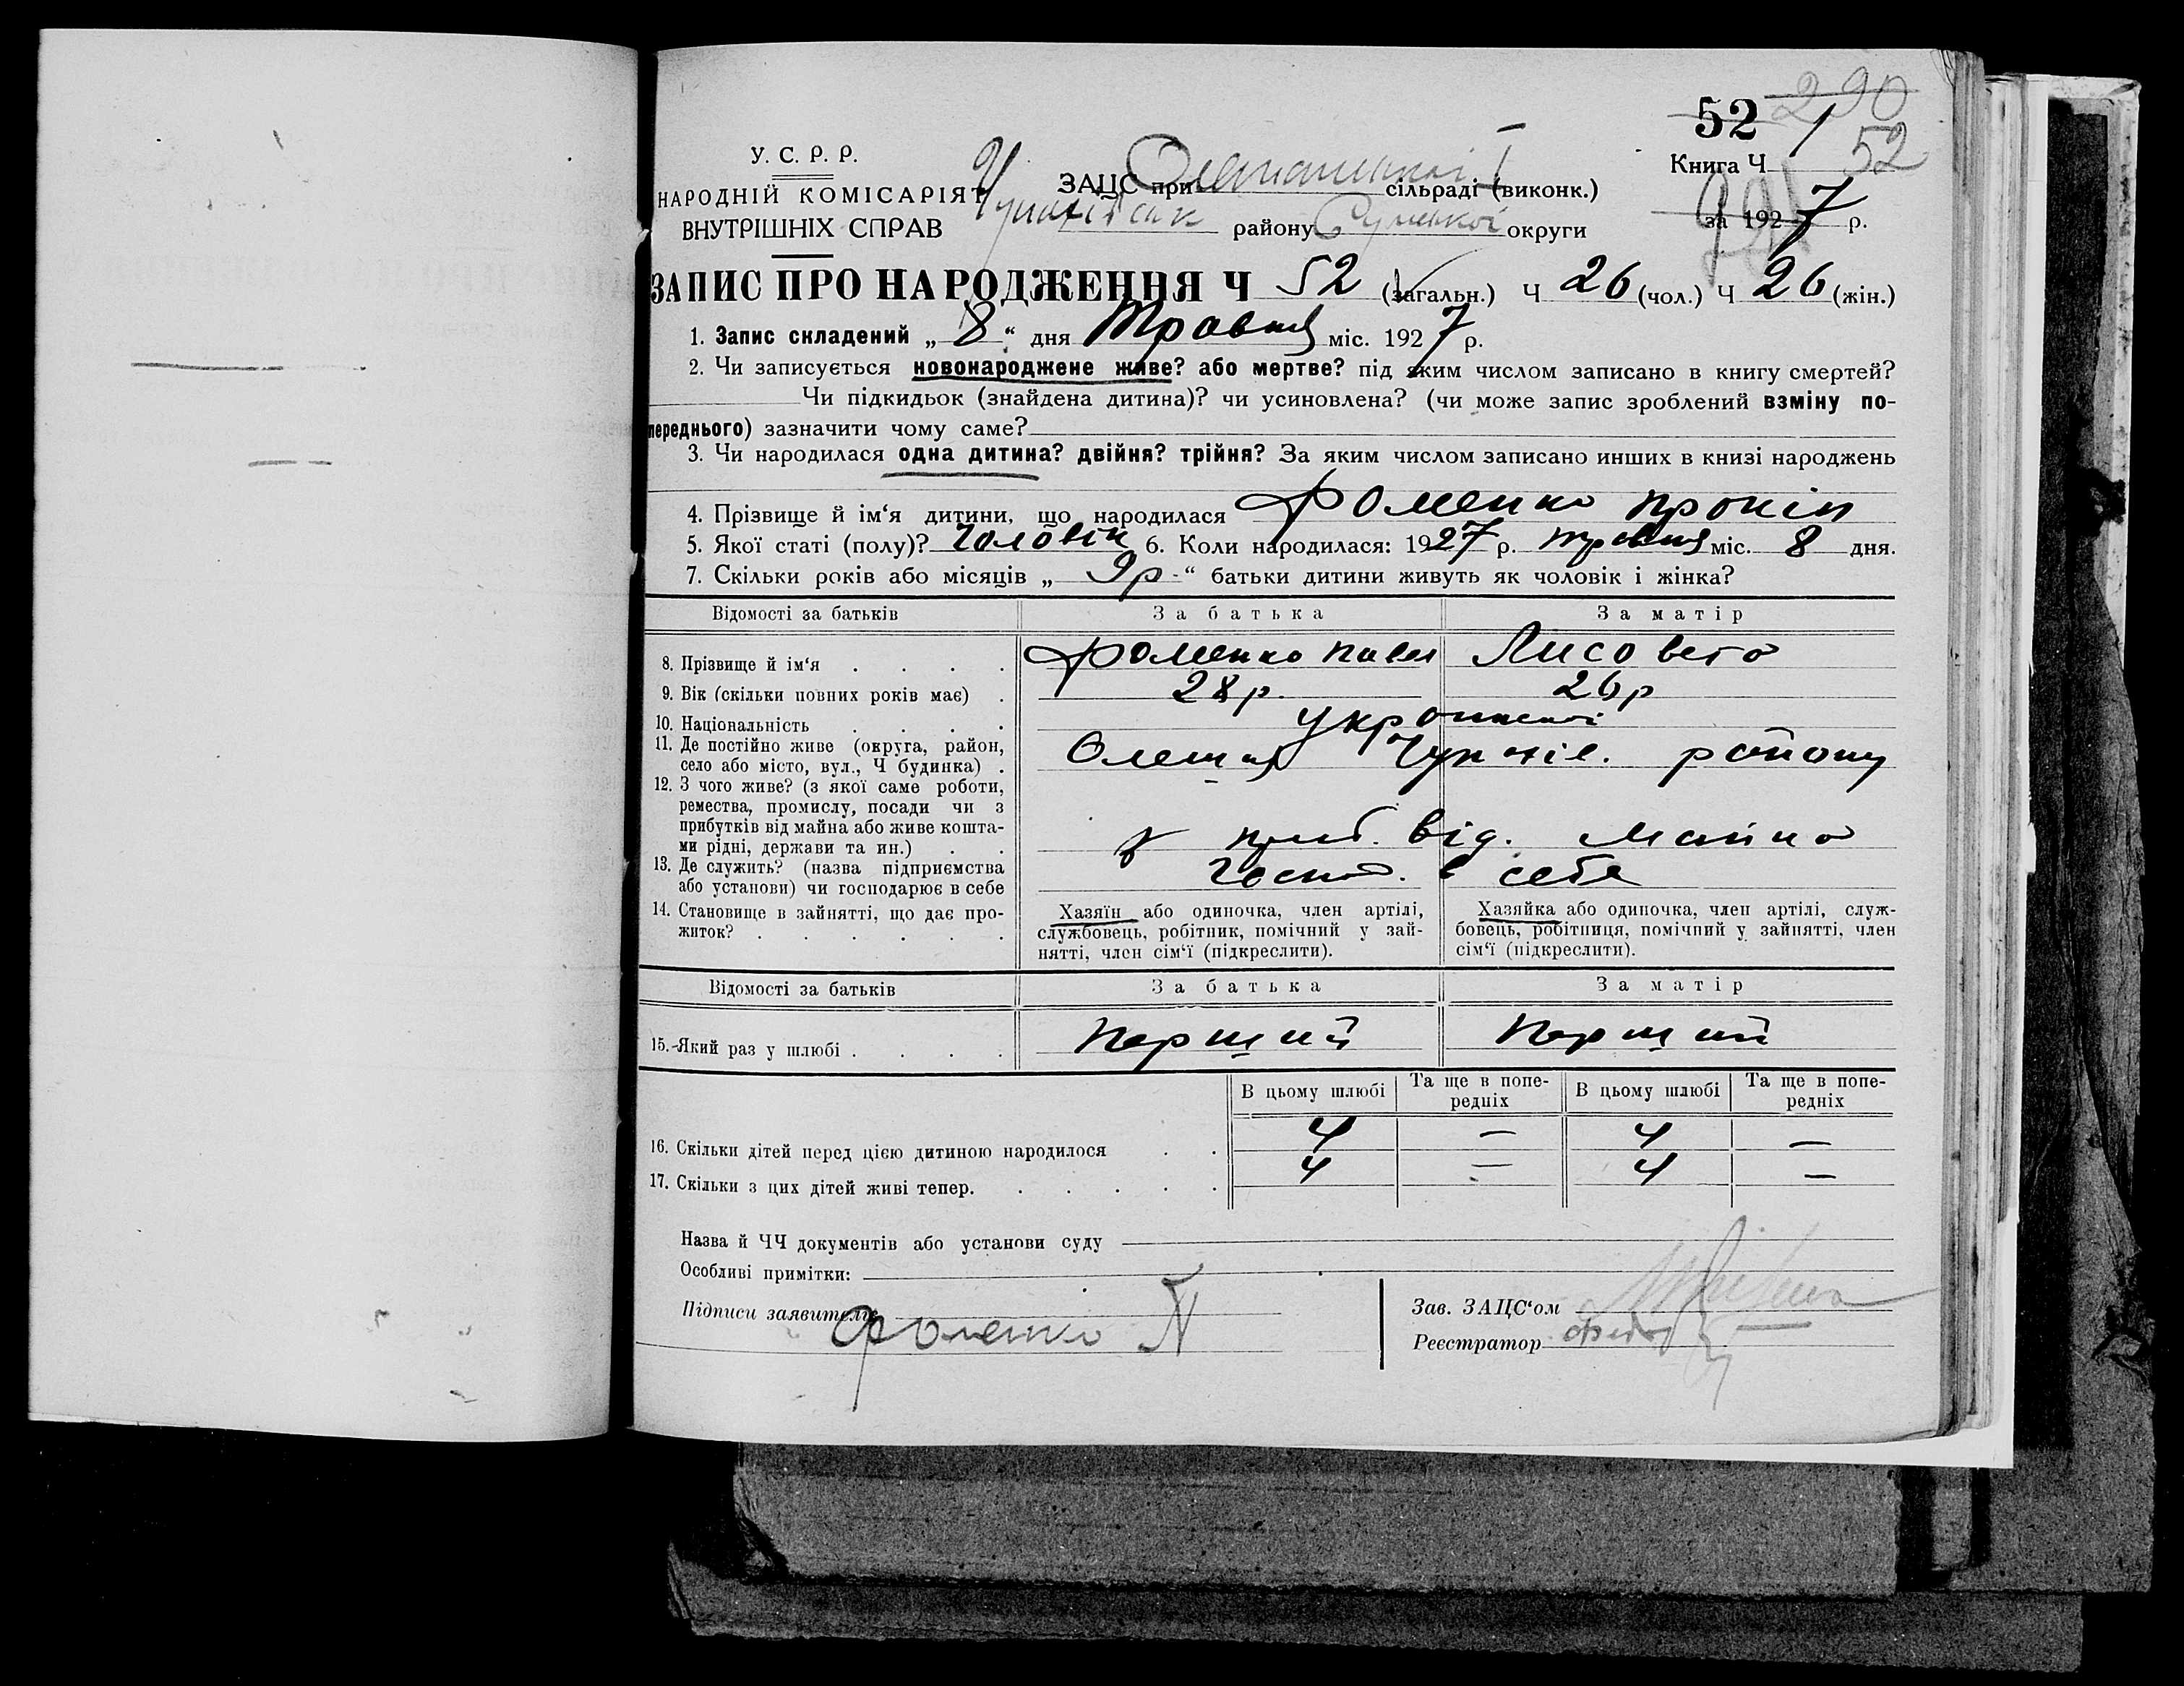 52 290
У. С. Р. Р.
НАРОДНІЙ КОМІСАРІЯТ
ВНУТРІШНІХ СПРАВ
ЗАЦС при сільраді (виконк.)
району Сумської округи
Книга Ч 52
за 1927 р.
ЗАПИС ПРО НАРОДЖЕННЯ Ч 52 (загальн.) Ч 26 (чол.) Ч 26 (жін.)
1. Запис складений „ 8 “ дня Травня міс. 1927 р.
2. Чи записується новонароджене живе? або мертве? під яким числом записано в книгу смертей?
Чи підкидьок (знайдена дитина)? чи усиновлена? (чи може запис зроблений взміну по-
переднього) зазначити чому саме?
3. Чи народилася одна дитина? двійня? трійня? За яким числом записано инших в книзі народжень
4. Прізвище й ім‘я дитини, що народилася Фоменко Прокіп
5. Якої статі (полу)? Чоловік 6. Коли народилася: 1927 р. травня міс. 8 дня.
7. Скільки років або місяців „ 9р. “ батьки дитини живуть як чоловік і жінка?
Відомості за батьків За батька За матір
8. Прізвище й ім‘я . . . . Фоменко Павел Лисовета
9. Вік (скільки повних років має) . 28 р. 26 р
10. Національність . . . . української
11. Де постійно живе (округа, район,
село або місто, вул., Ч будинка) . Олешня Чупахів. району
12. З чого живе? (з якої саме роботи,
ремества, промислу, посади чи з
прибутків від майна або живе кошта-
ми рідні, держави та ин.) . . з приб. від. майна
13. Де служить? (назва підприємства
або установи) чи господарює в себе Госпо. в себе
14. Становище в зайнятті, що дає про-
житок? . . . . . .
Хазяїн або одиночка, член артілі,
службовець, робітник, помічний у зай-
нятті, член сім‘ї (підкреслити).
Хазяйка або одиночка, член артілі, служ-
бовець, робітниця, помічний у зайнятті, член
сім‘ї (підкреслити).
Відомості за батьків За батька За матір
15. Який раз у шлюбі . . . . Перший Перший
В цьому шлюбі Та ще в попе-
редніх В цьому шлюбі Та ще в попе-
редніх
16. Скільки дітей перед цією дитиною народилося . . 4 — 4 —
17. Скільки з цих дітей живі тепер. . . . . . 4 — 4 —
Назва й ЧЧ документів або установи суду
Особливі примітки:
Підписи заявителів Фоменко П
Зав. ЗАЦС‘ом
Реєстратор